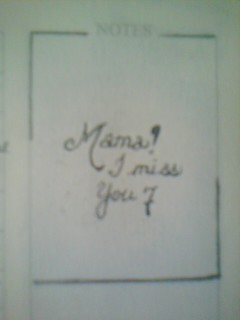 NOTES
Mama!
I miss
You 7